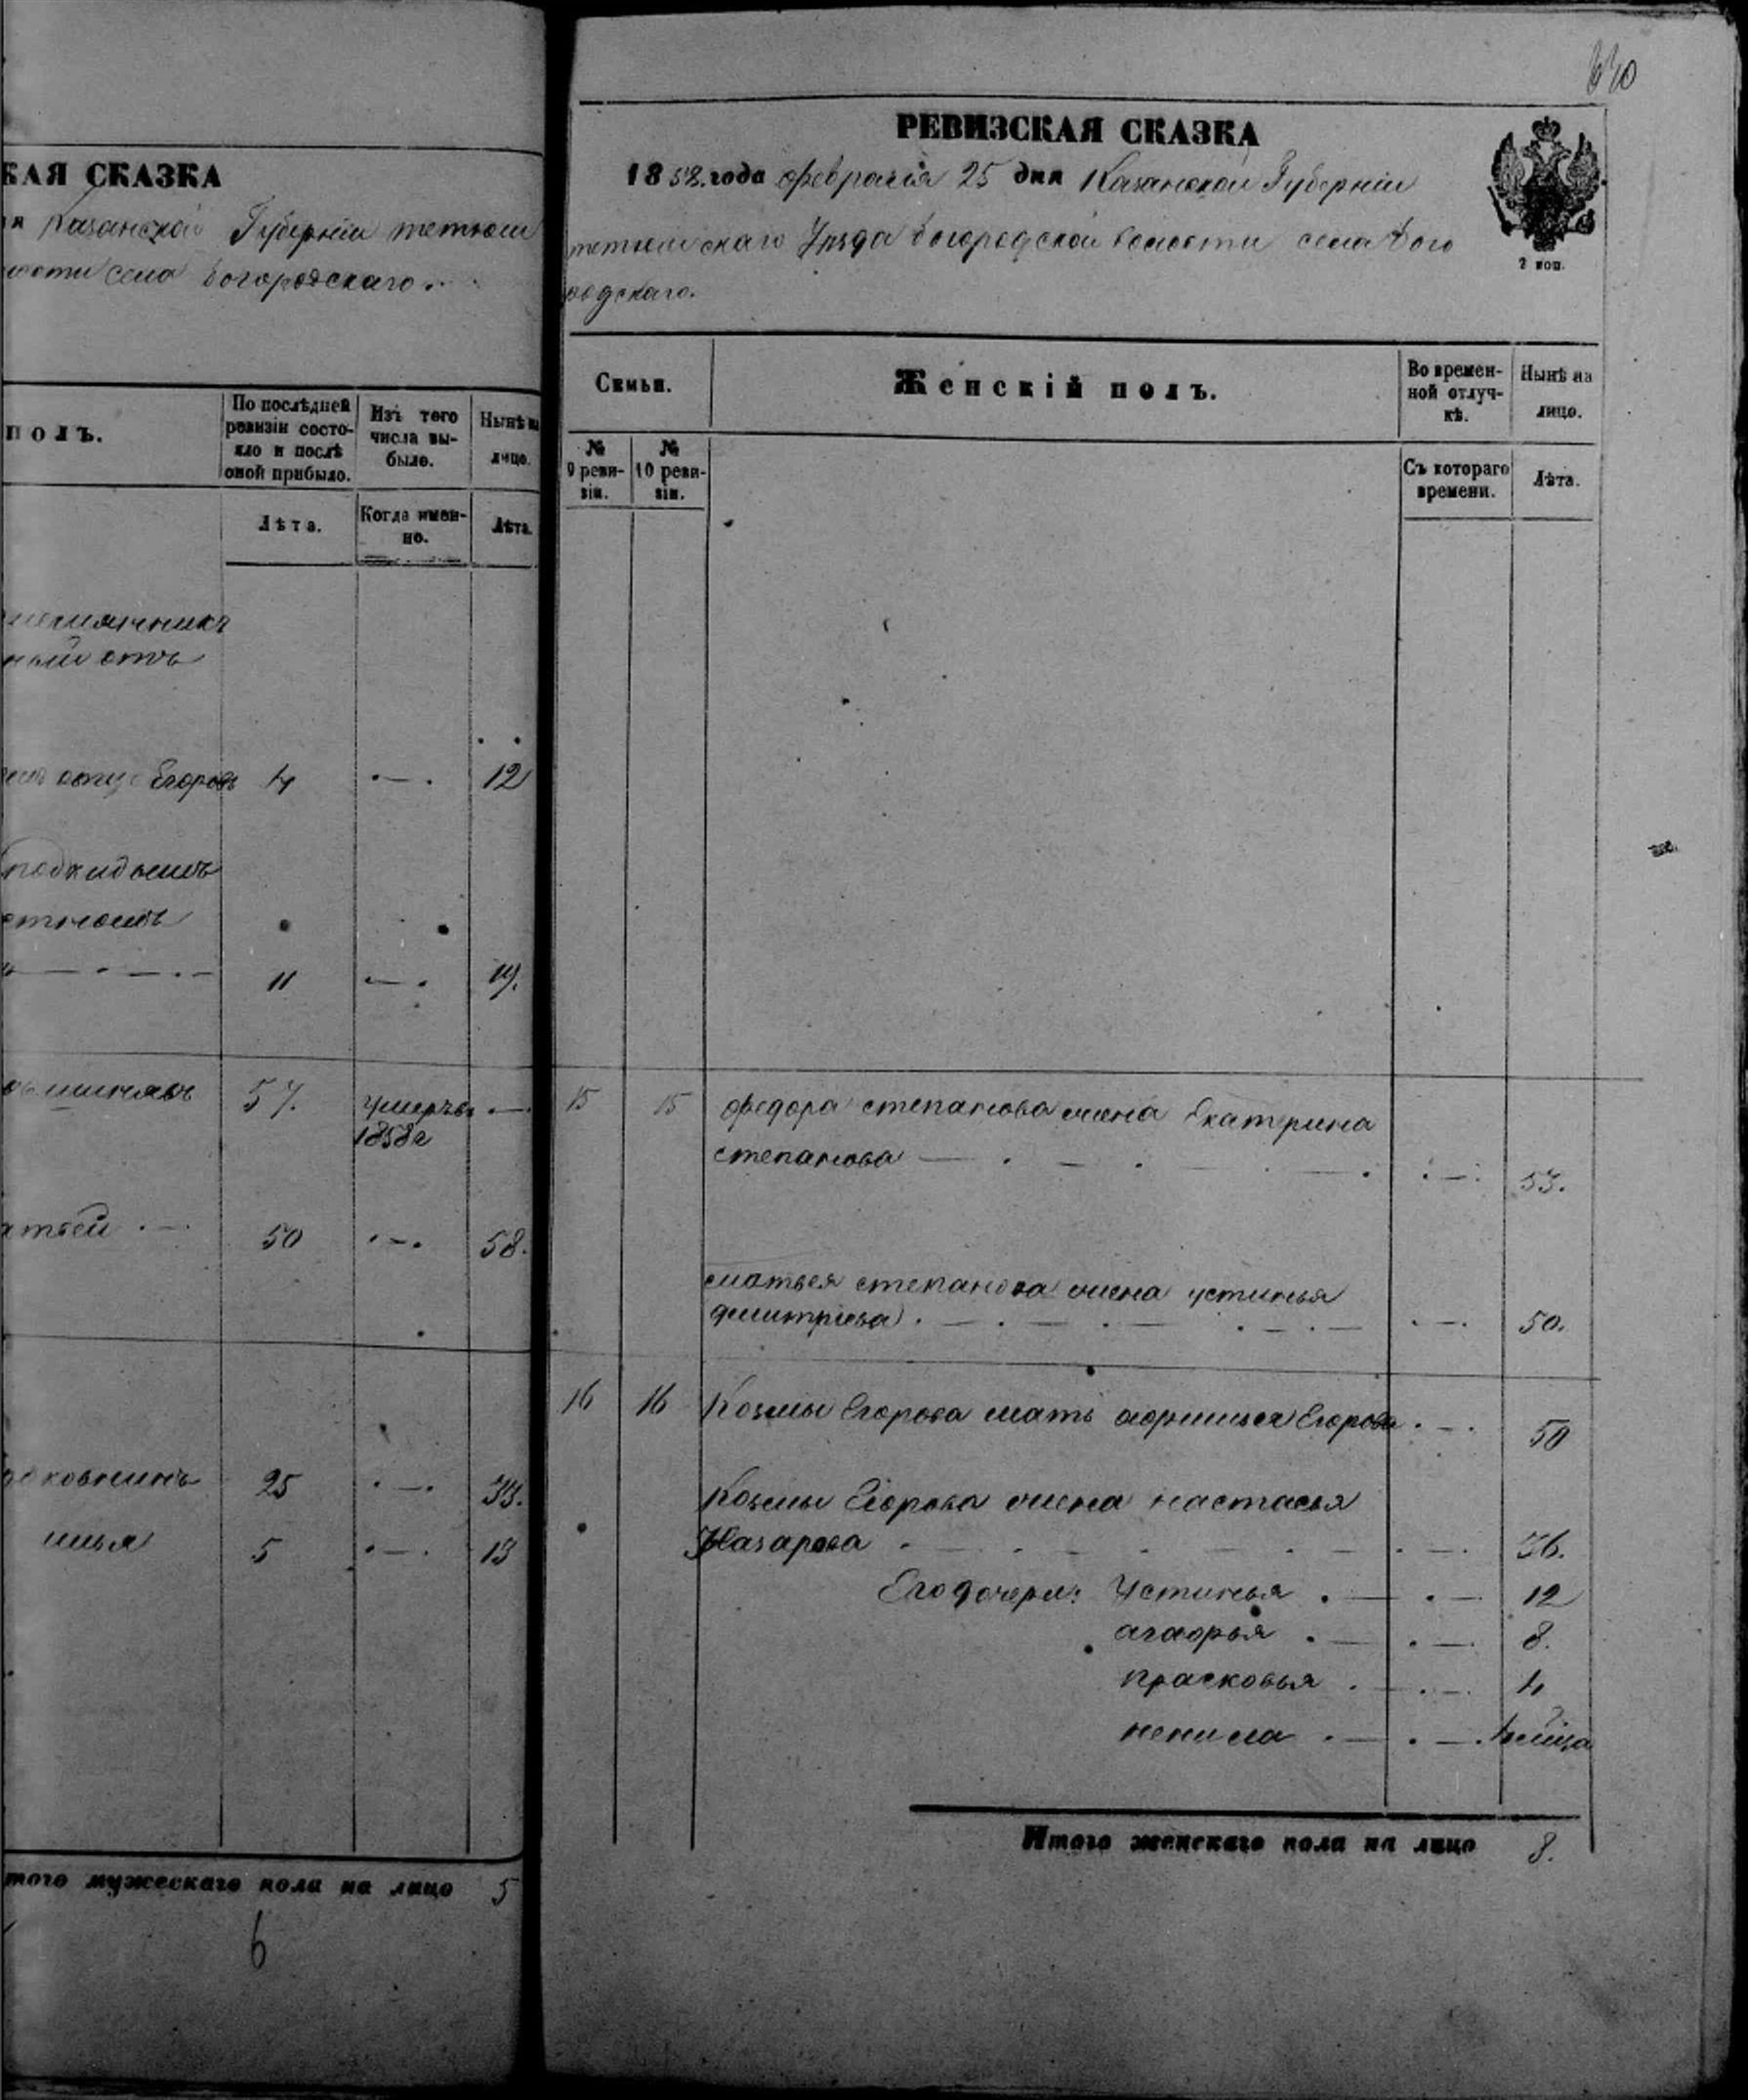 КАЯ СКАЗКА
Казанской Губернiи тетюш
села богородскаго.
полъ.
По послѣдней ревизiи состояло и послѣ оной прибыло.
Изъ того числа выбыло.
Нынѣ на лицо.
Лѣта.
Когда именно.
Лѣта.
племянникъ
ный отъ
Егоровъ 4 12
подкидышъ
11 19.
57. умеръ въ
1858г
атвей 50 58.
25 33.
илья 5 13
того мужескаго пола на лицо 5
6
РЕВИЗСКАЯ СКАЗКА
1858. года февраля 25 дня Казанской Губернiи
тетюшскаго Уѣзда богородской волости села Бого
родскаго.
2 коп.
Семьи.
Женскiй полъ.
Во временной отлучкѣ.
Нынѣ на лицо.
№ 9 ревизiи.
№ 10 ревизiи.
Съ котораго времени.
Лѣта.
15 15 федора степанова жена Екатерина
степанова 53.
матвея степанова жена устинья
дмитрiева 50.
16 16 Козмы Егорова мать афимья Егорова 50
Козмы Егорова жена настасья
Назарова 36.
Его дочери: Устинья 12
агафья 8.
прасковья 4
ненила 4 мѣца
Итого женскаго пола на лицо 8.